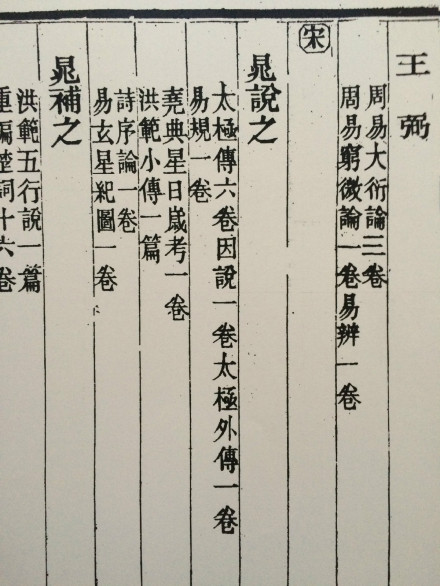 王弼
周易大衍論三卷
周易窮微論一卷易辨一卷
宋
晁說之
太極傳六卷因說一卷太極外傳一卷
易規一卷
堯典星日嵗考一卷
洪範小傳一篇
詩序論一卷
易玄星紀圖一卷
晁補之
洪範五行說一篇
重編楚詞十六卷